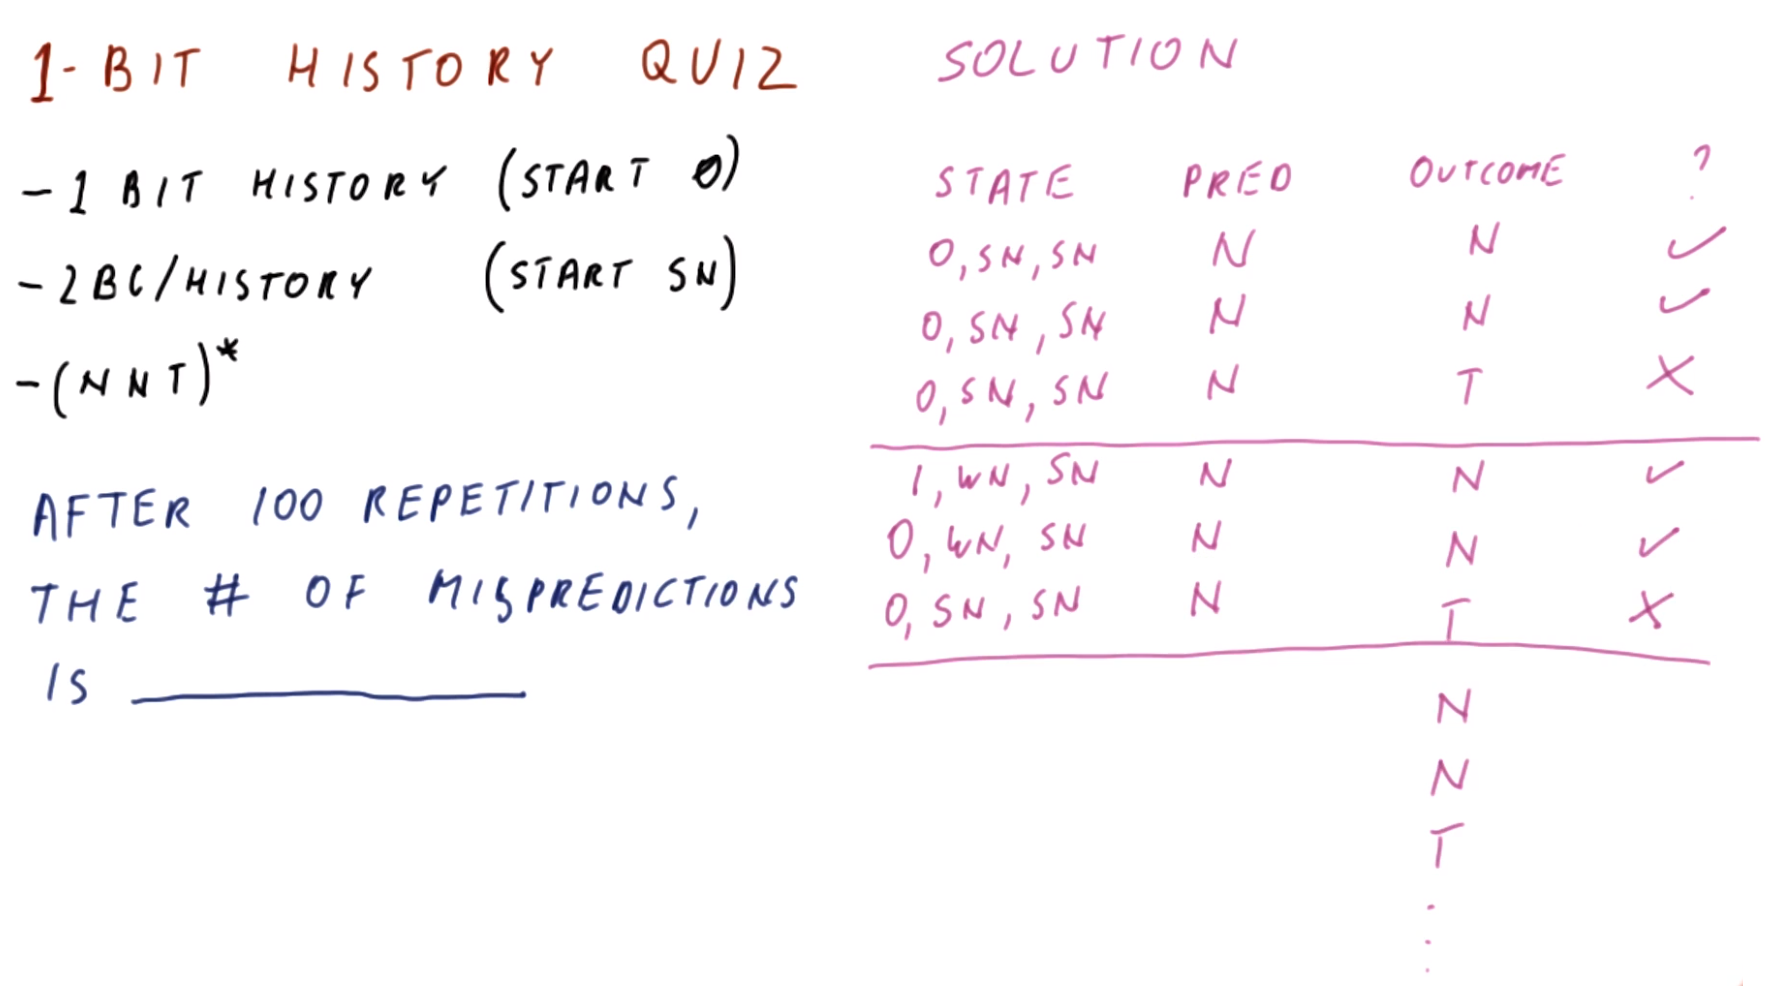 1-BIT HISTORY QUIZ
-1 BIT HISTORY (START 0)
-2BC/HISTORY (START SN)
-(NNT)*
AFTER 100 REPETITIONS,
THE # OF MISPREDICTIONS
IS
SOLUTION
STATE PRED OUTCOME ?
0, SN, SN N N ✓
0, SN, SN N N ✓
0, SN, SN N T X
1, WN, SN N N ✓
0, WN, SN N N ✓
0, SN, SN N T X
N
N
T
.
.
.